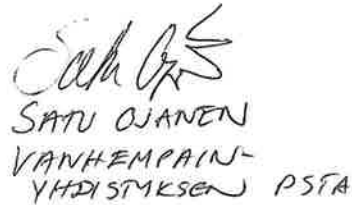 SATU OJANEN
VANHEMPAIN-
YHDISTYKSEN PSTA